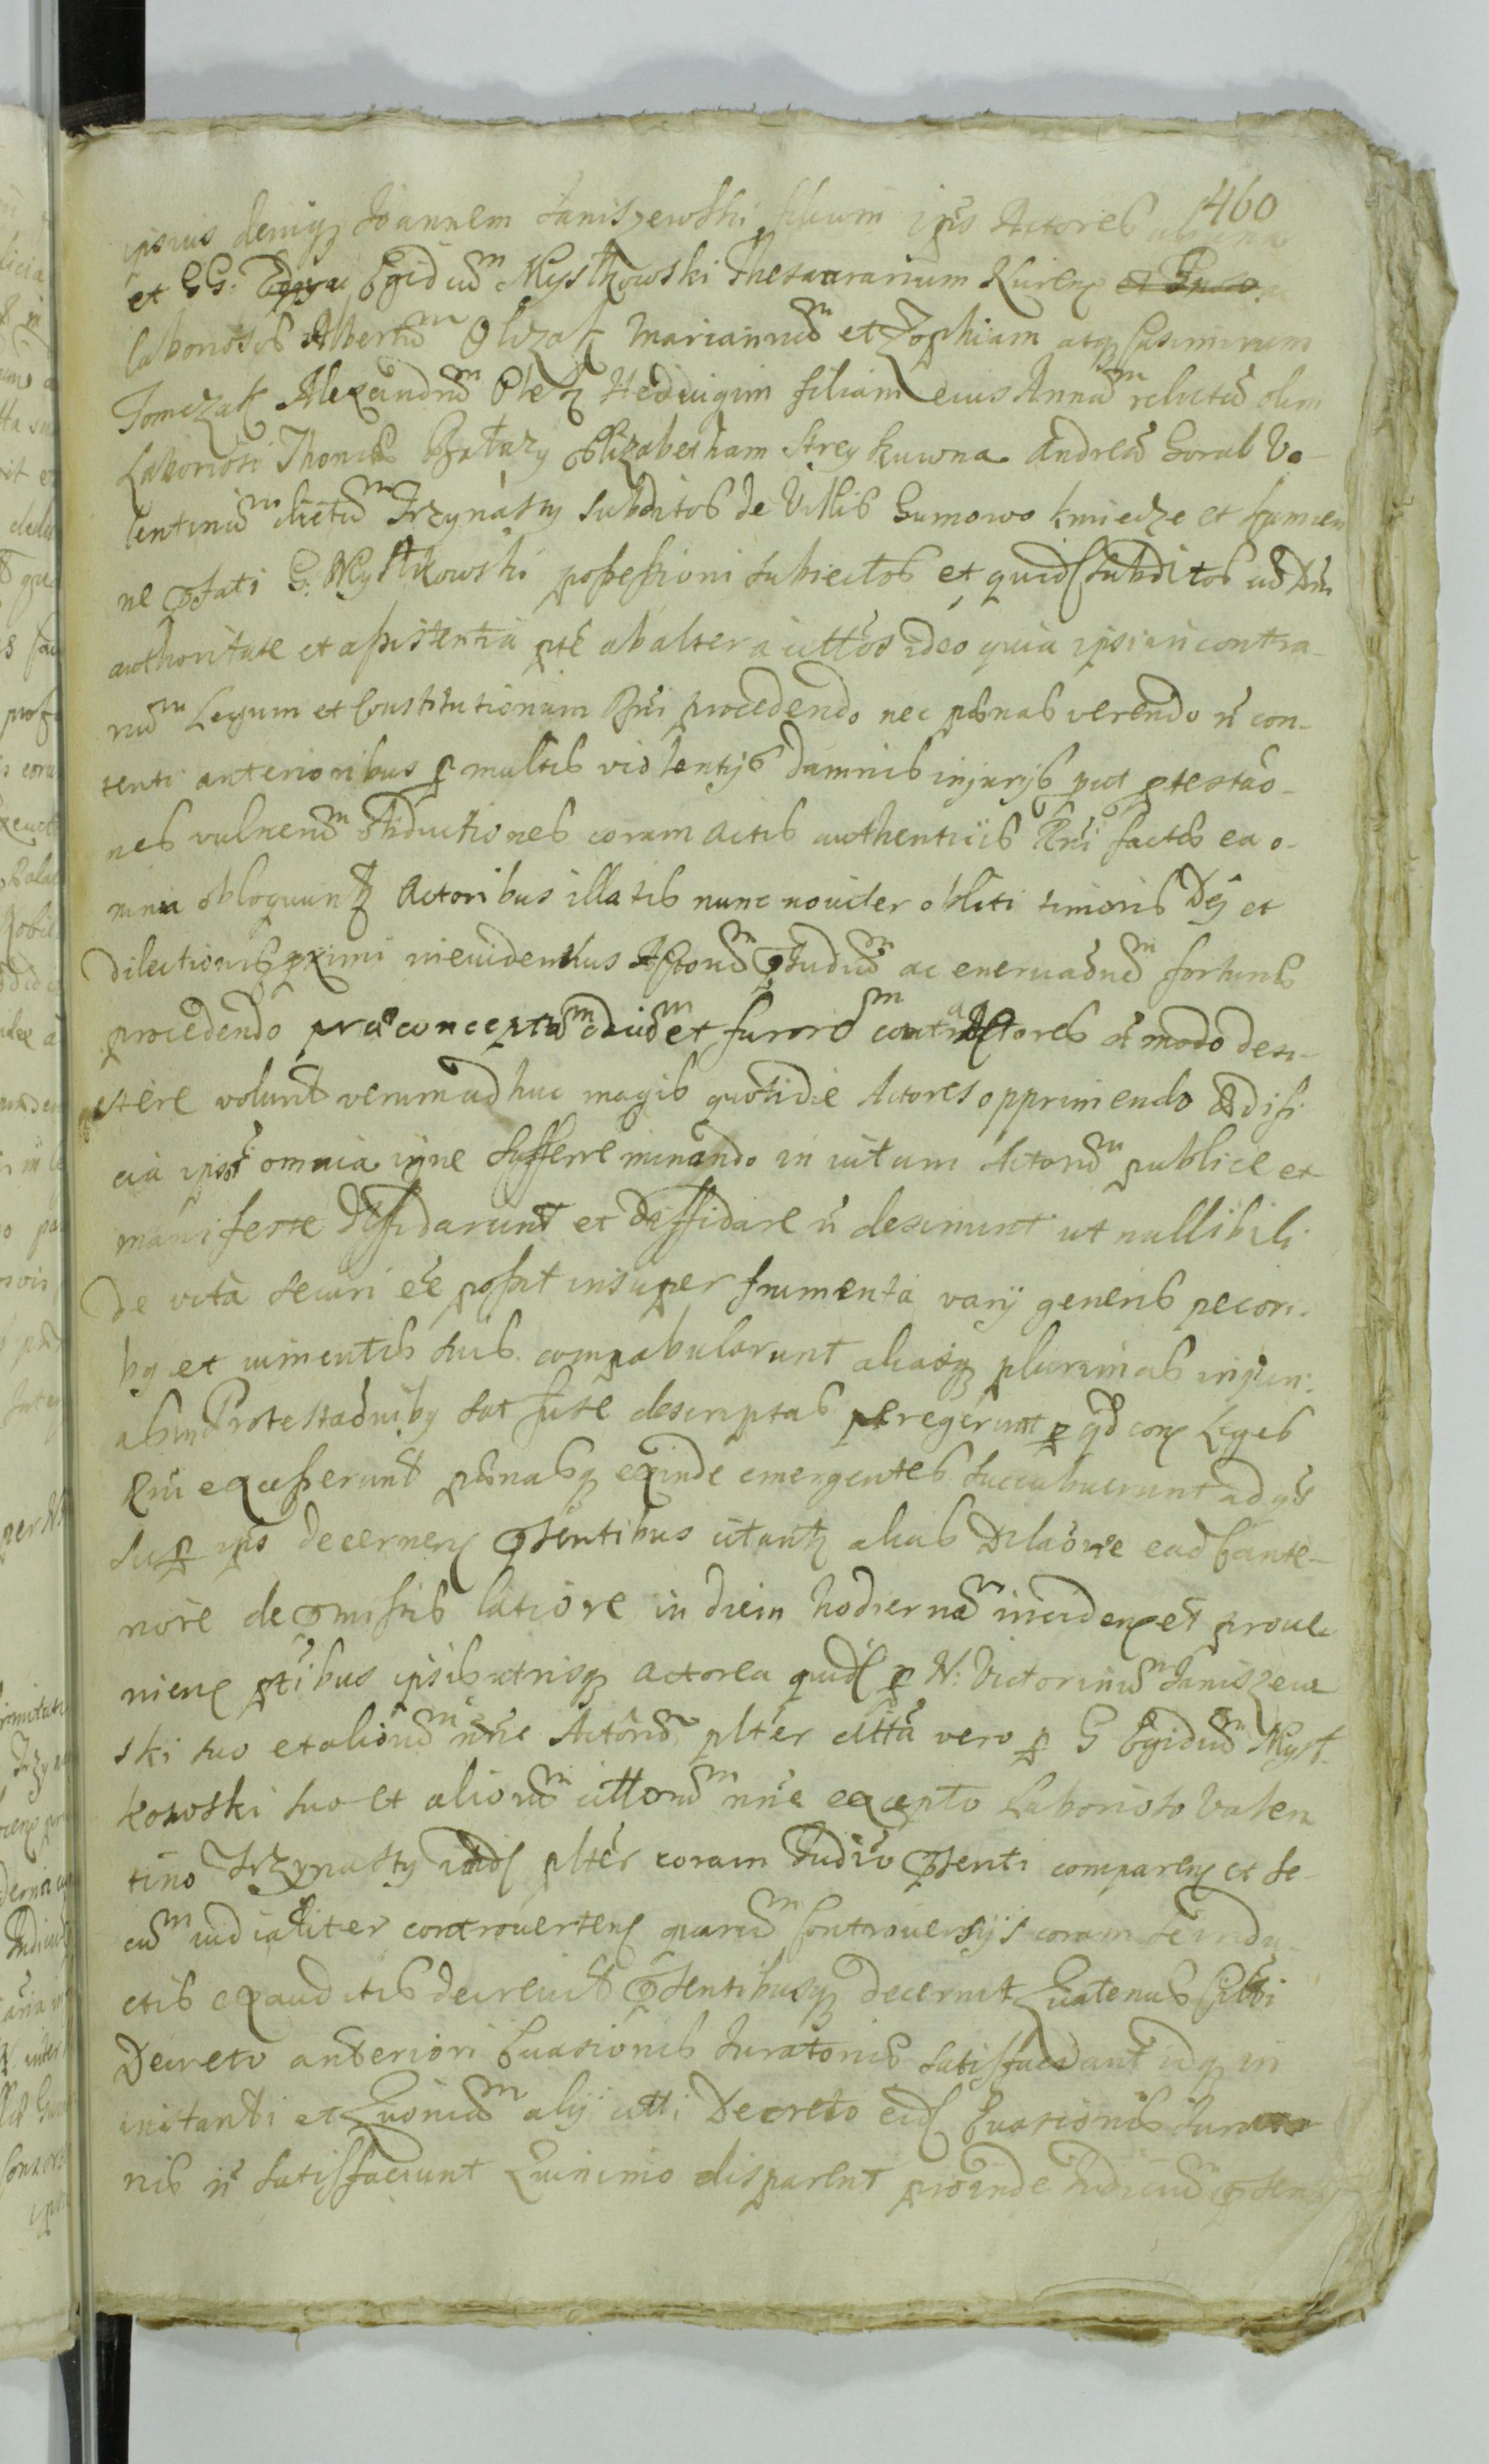 460
ipsius deniq Joannem Janiszewski filium ips Actores ab una
et GG. Egidium Mystkowski Thesaurarium Kuren et
laboriosos Albertum Olizak Mariannam et Zophiam atq Casimirum
Tomczak Alexandrum Hedvigim filiam eius Annam relictam olim
Laboriosi Thomae Elizabetham Streykuwna Andream Goral Va-
lentinum dictum Trzynasty subditos de Villis Gumowo kmiecze et
ne pfati G. Mystkowski possessioni subiectos et quid subditos ad
authoritate et assistentia pte ab altera cittos ideo quia ipsi in contra-
rium Legum et Constitutionum Rni procedendo nec poenas verendo n con-
tenti anterioribus p multis violentijs damnis injurijs put ptestao-
nes vulnerum obductiones coram actis authenticis Rni factis ea o-
mnia obloquunt Actoribus illatis nunc noviter obliti timoris Dei et
dilectionis pximi in evidentius Actorum pjudium ac enervaonem fortunae
procedendo praeconceptum odium et furorem contra Actores n modo desi-
stere volunt verum ad huc magis quotidie Actores opprimendo aedifi
cia ipsor omnia igne sufferre minando in vitam Actorum publice et
manifeste diffidarunt et diffidare n desinunt ut nullibi li
de vita securi ee possit insuper frumenta varij generis pecori-
bq et iumentis suis compabularunt aliasq plurimas injuri-
as in Protestaonibq sat fuse descriptas peregerunt p qd con Leges
Rni excesserunt poenasq exinde emergentes succubuerunt ad qs
sup ips decernen psentibus citant alias Dilaone ead ante-
riore de pmissis latiore in diem hodiernam inciden et prove-
nien ptibus ipsis utrisq actorea quid p N. Victorinum Janiszew
ski suo et aliorum nne Actorum plter citta vero p G Egidium Myst-
kowski suo et aliorum cittorum nne excepto Laborioso Valen
tino Trzynasty itid plter coram Judio psenti comparen et se-
cum iudicialiter controverten quarum Controversijs coram se indu-
ctis exauditis decrevit psentibusq decernit Quatenus citti
Decreto anteriori Evasionis Juratoriis satisfaciant idq in
instanti et Quoniam alij citti Decreto eid Evasionis
nis n satisfaciunt Quinimo disparent proinde Judicium psens